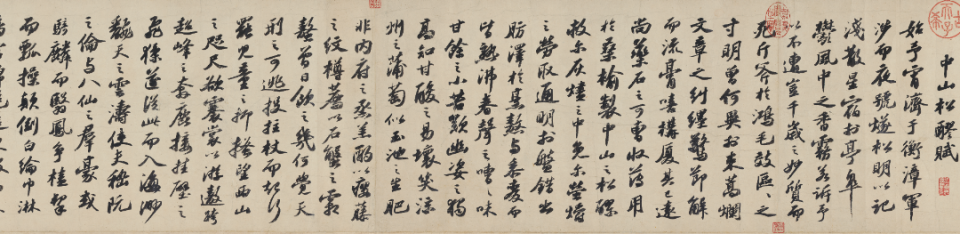 中山松醪賦
始予宵濟于衡漳軍
涉而夜號燧松明以記
淺散星宿於亭皋
鬱風中之香霧若訴予
以不遭豈千歲之妙質而
死斤斧於鴻毛效區區之
寸明曾何異於束蒿爛
文章之糾纏驚節解
而流膏嗟構廈其已遠
尚藥石之可曹收薄用
於桑榆製中山之松醪
救爾灰燼之中免爾螢爝
之勞取通明於盤錯出
肪澤於烹熬與黍麥而
皆熟沸舂聲之嘈嘈味
甘餘之小苦歎幽姿之獨
高知甘酸之易壞笑涼
州之蒲萄似玉池之生肥
非內府之蒸羔酌以癭藤
之紋樽薦以石蟹之霜
螯曾日飲之幾何覺天
刑之可逃投拄杖而起行
罷兒童之抑搔望西山
之咫尺欲褰裳以游遨跨
超峰之奔鹿接挂壁之
飛猱遂從此而入海渺
翻天之雲濤使夫嵇阮
之倫與八仙之群豪或
騎麟而翳鳳爭榼挈
而瓢操顛倒白綸巾淋